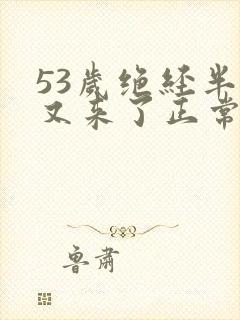 53岁绝经半
又来了正常
鲁肃